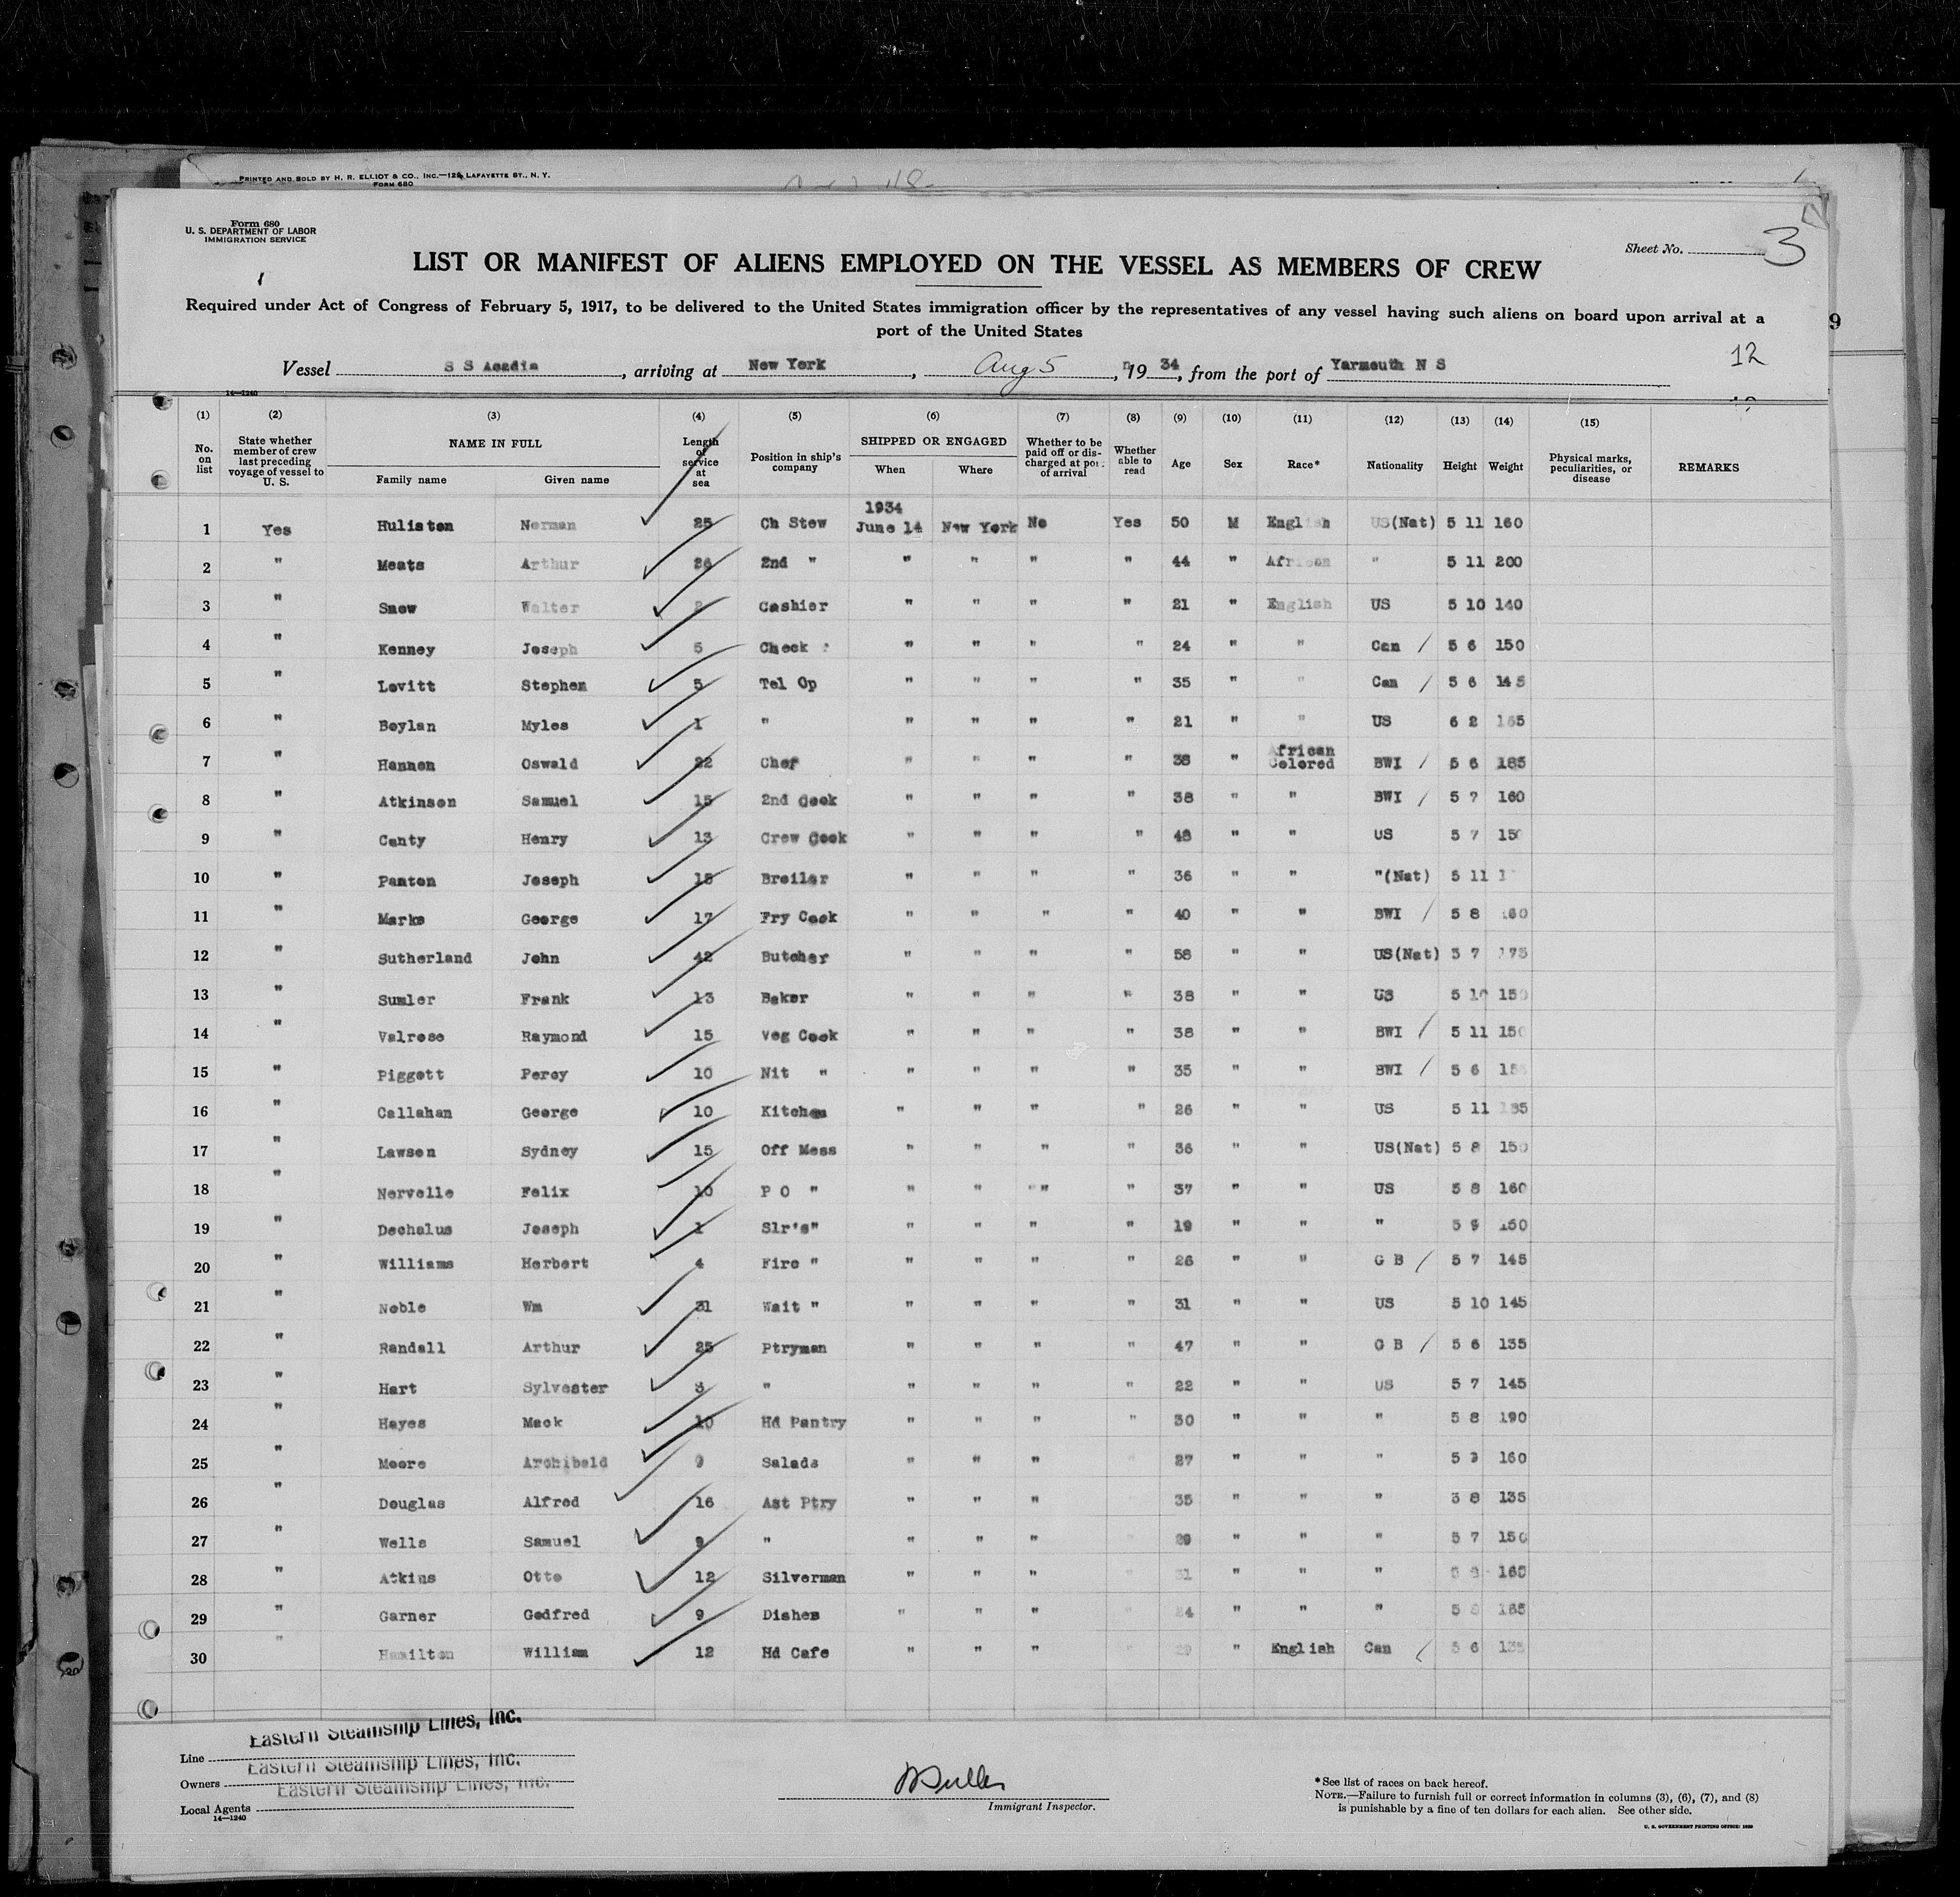 PRINTED AND SOLD BY H. R. ELLIOT & CO., INC.—124 LAFAYETTE ST., N. Y.
FORM 680
Form 680
U. S. DEPARTMENT OF LABOR
IMMIGRATION SERVICE
Sheet No. 3
LIST OR MANIFEST OF ALIENS EMPLOYED ON THE VESSEL AS MEMBERS OF CREW
Required under Act of Congress of February 5, 1917, to be delivered to the United States immigration officer by the representatives of any vessel having such aliens on board upon arrival at a
port of the United States
9
12
Vessel S S Acadia, arriving at New York, Aug 5, 1934, from the port of Yarmouth N S
14—1240
(1) (2) (3) (4) (5) (6) (7) (8) (9) (10) (11) (12) (13) (14) (15)
No. on list State whether member of crew last preceding voyage of vessel to U. S. NAME IN FULL Family name Given name Length of service at sea Position in ship's company SHIPPED OR ENGAGED When Where Whether to be paid off or discharged at port of arrival Whether able to read Age Sex Race* Nationality Height Weight Physical marks, peculiarities, or disease REMARKS
1934
1 Yes Huliston Norman 25 Ch Stew June 14 New York No Yes 50 M English US(Nat) 5 11 160
2 " Meats Arthur 26 2nd " " " " " 44 " African " 5 11 200
3 " Snow Walter 2 Cashier " " " " 21 " English US 5 10 140
4 " Kenney Joseph 5 Check " " " " 24 " " Can / 5 6 150
5 " Lovitt Stephen 5 Tel Op " " " " 35 " " Can / 5 6 145
6 " Boylan Myles 1 " " " " " 21 " " US 6 2 165
7 " Hannon Oswald 22 Chef " " " " 38 " African Colored BWI / 5 6 185
8 " Atkinson Samuel 15 2nd Cook " " " " 38 " " BWI / 5 7 160
9 " Canty Henry 13 Crew Cook " " " " 48 " " US 5 7 150
10 " Panton Joseph 15 Broiler " " " " 36 " " "(Nat) 5 11
11 " Marks George 17 Fry Cook " " " " 40 " " BWI / 5 8 160
12 " Sutherland John 42 Butcher " " " " 58 " " US(Nat) 5 7 175
13 " Sumler Frank 13 Baker " " " " 38 " " US 5 10 150
14 " Valrose Raymond 15 Veg Cook " " " " 38 " " BWI / 5 11 150
15 " Piggott Percy 10 Nit " " " " " 35 " " BWI / 5 6
16 " Callahan George 10 Kitchen " " " " 26 " " US 5 11
17 " Lawson Sydney 15 Off Mess " " " " 36 " " US(Nat) 5 8 150
18 " Nervelle Felix 10 P O " " " " " 37 " " US 5 8 160
19 " Dechalus Joseph 1 Slr's" " " " " 19 " " " 5 9 150
20 " Williams Herbert 4 Fire " " " " " 26 " " G B / 5 7 145
21 " Noble Wm 31 Wait " " " " " 31 " " US 5 10 145
22 " Randall Arthur 25 Ptryman " " " " 47 " " G B / 5 6 135
23 " Hart Sylvester 3 " " " " " 22 " " US 5 7 145
24 " Hayes Mack 10 Hd Pantry " " " " 30 " " " 5 8 190
25 " Moore Archibald 9 Salads " " " 27 " " " 5 9 160
26 " Douglas Alfred 16 Ast Ptry " " " 35 " " " 5 8 135
27 " Wells Samuel 9 " " " " 29 " " " 5 7 150
28 " Atkins Otto 12 Silverman " " " 31 " " " 5 8 165
29 " Garner Godfred 9 Dishes " " " 24 " " " 5 8 165
30 " Hamilton William 12 Hd Cafe " " " 29 " English Can / 5 6 135
Line Eastern Steamship Lines, Inc.
Owners Eastern Steamship Lines, Inc.
Local Agents Eastern Steamship Lines, Inc.
14—1240
Immigrant Inspector.
*See list of races on back hereof.
NOTE.—Failure to furnish full or correct information in columns (3), (6), (7), and (8)
is punishable by a fine of ten dollars for each alien. See other side.
U. S. GOVERNMENT PRINTING OFFICE: 1929